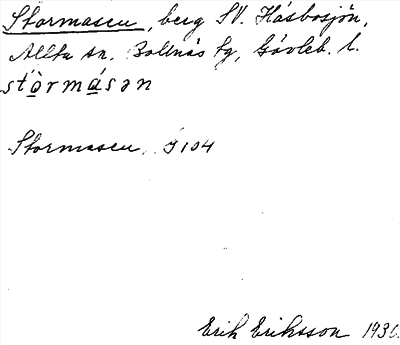 Stormasen, berg SV. Håsbosjön,
Alfta sn. Bollnäs tg, Gävleb. l.
stòrmásən
Stormasen. J 104
Erik Eriksson 1936.